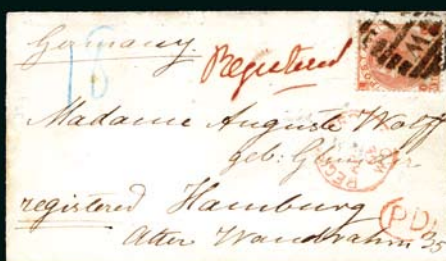 Germany.
18 Registered
Madame Auguste Wolff
geb:
registered Hamburg
PD
Alter Wandrahm 35